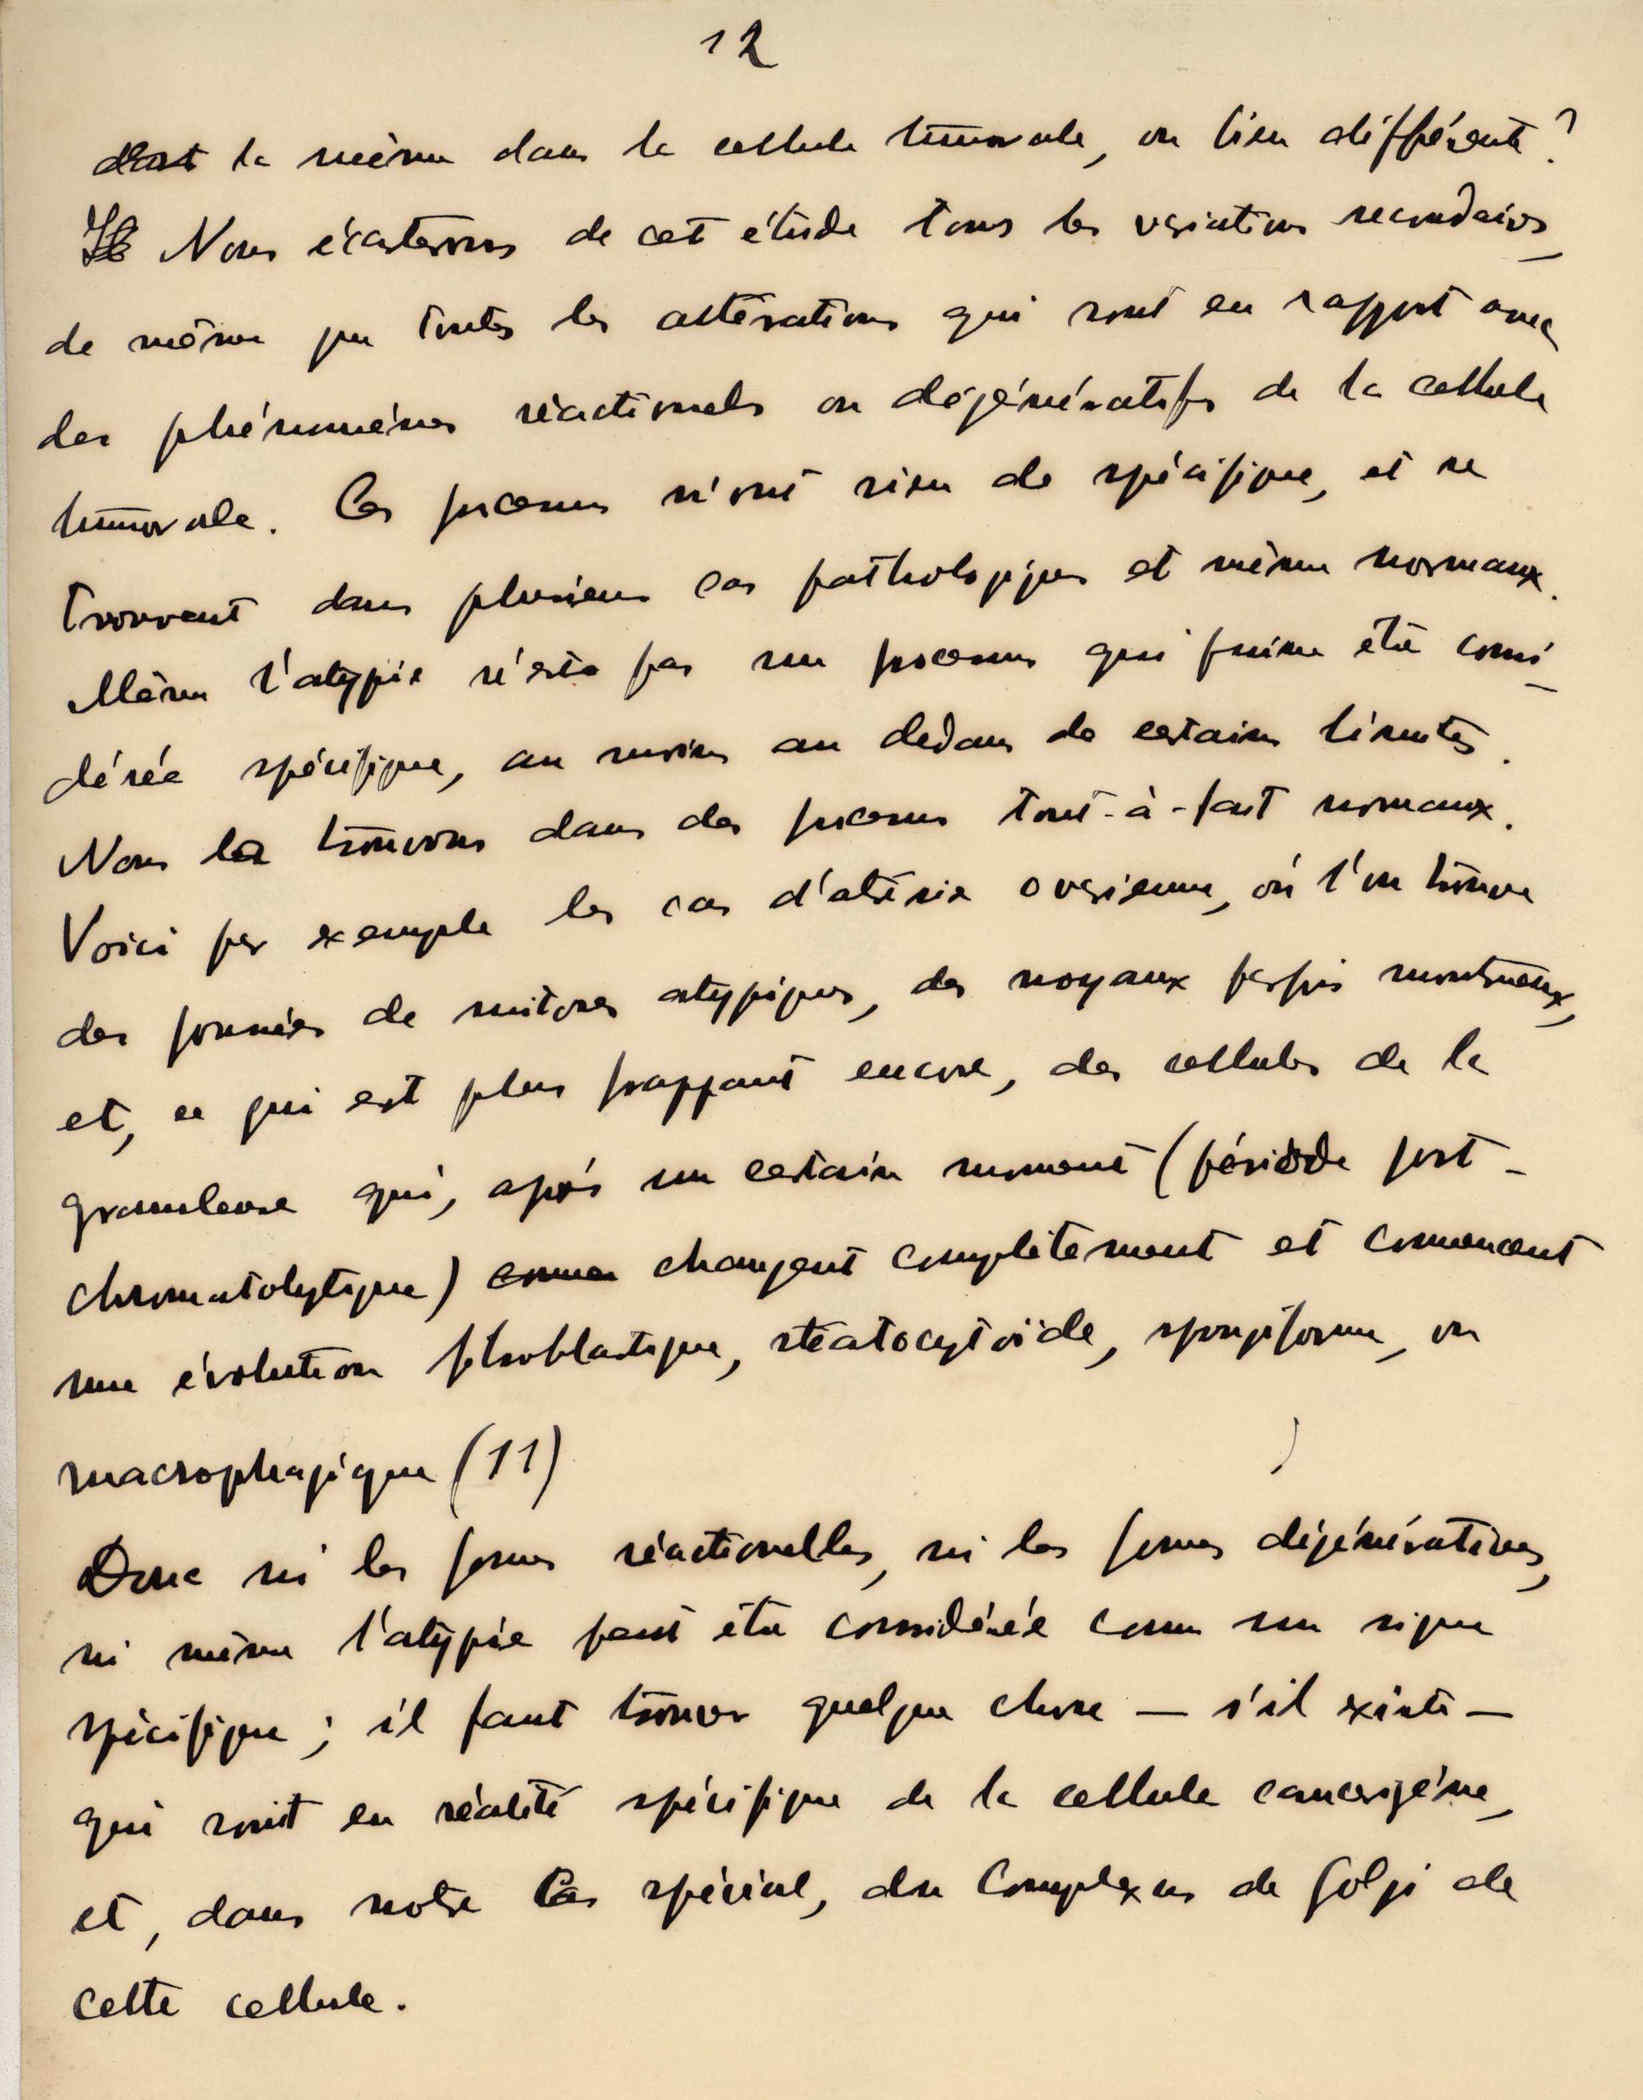 12
est la même dans la cellule tumorale, ou bien différente?
Nous écarterons de cet étude tous les variations secondaires,
de même que toutes les altérations qui sont en rapport avec
des phénomènes réactionnels ou dégénératifs de la cellule
tumorale. Ces processus n'ont rien de spécifique, et se
trouvent dans plusieurs cas pathologiques et même normaux.
Même l'atypie n'est pas un processus qui puisse être consi-
dérée spécifique, au moins au dedans de certains limites.
Nous la trouvons dans des processus tout-à-fait normaux.
Voici par exemple les cas d'atrésie ovarienne, où l'on trouve
des formes de mitoses atypiques, des noyaux parfois monstrueux,
et, ce qui est plus frappant encore, des cellules de la
granuleuse qui, après un certain moment (période post-
chromatolytique) changent complètement et commencent
une évolution fibroblastique, stéatocytoïde, spongiforme, ou
macrophagique (11)
Donc ni les formes réactionelles, ni les formes dégénératives,
ni même l'atypie peut être considérée comme un signe
spécifique; il faut trouver quelque chose — s'il existe —
qui soit en réalité spécifique de la cellule cancerigène,
et, dans notre cas spécial, du Complexus de Golgi de
cette cellule.